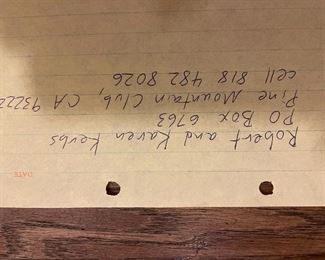 DATE
Robert and Karen Kerbs
PO Box 6763
Pine Mountain Club, CA 93222
cell 818 482 8026